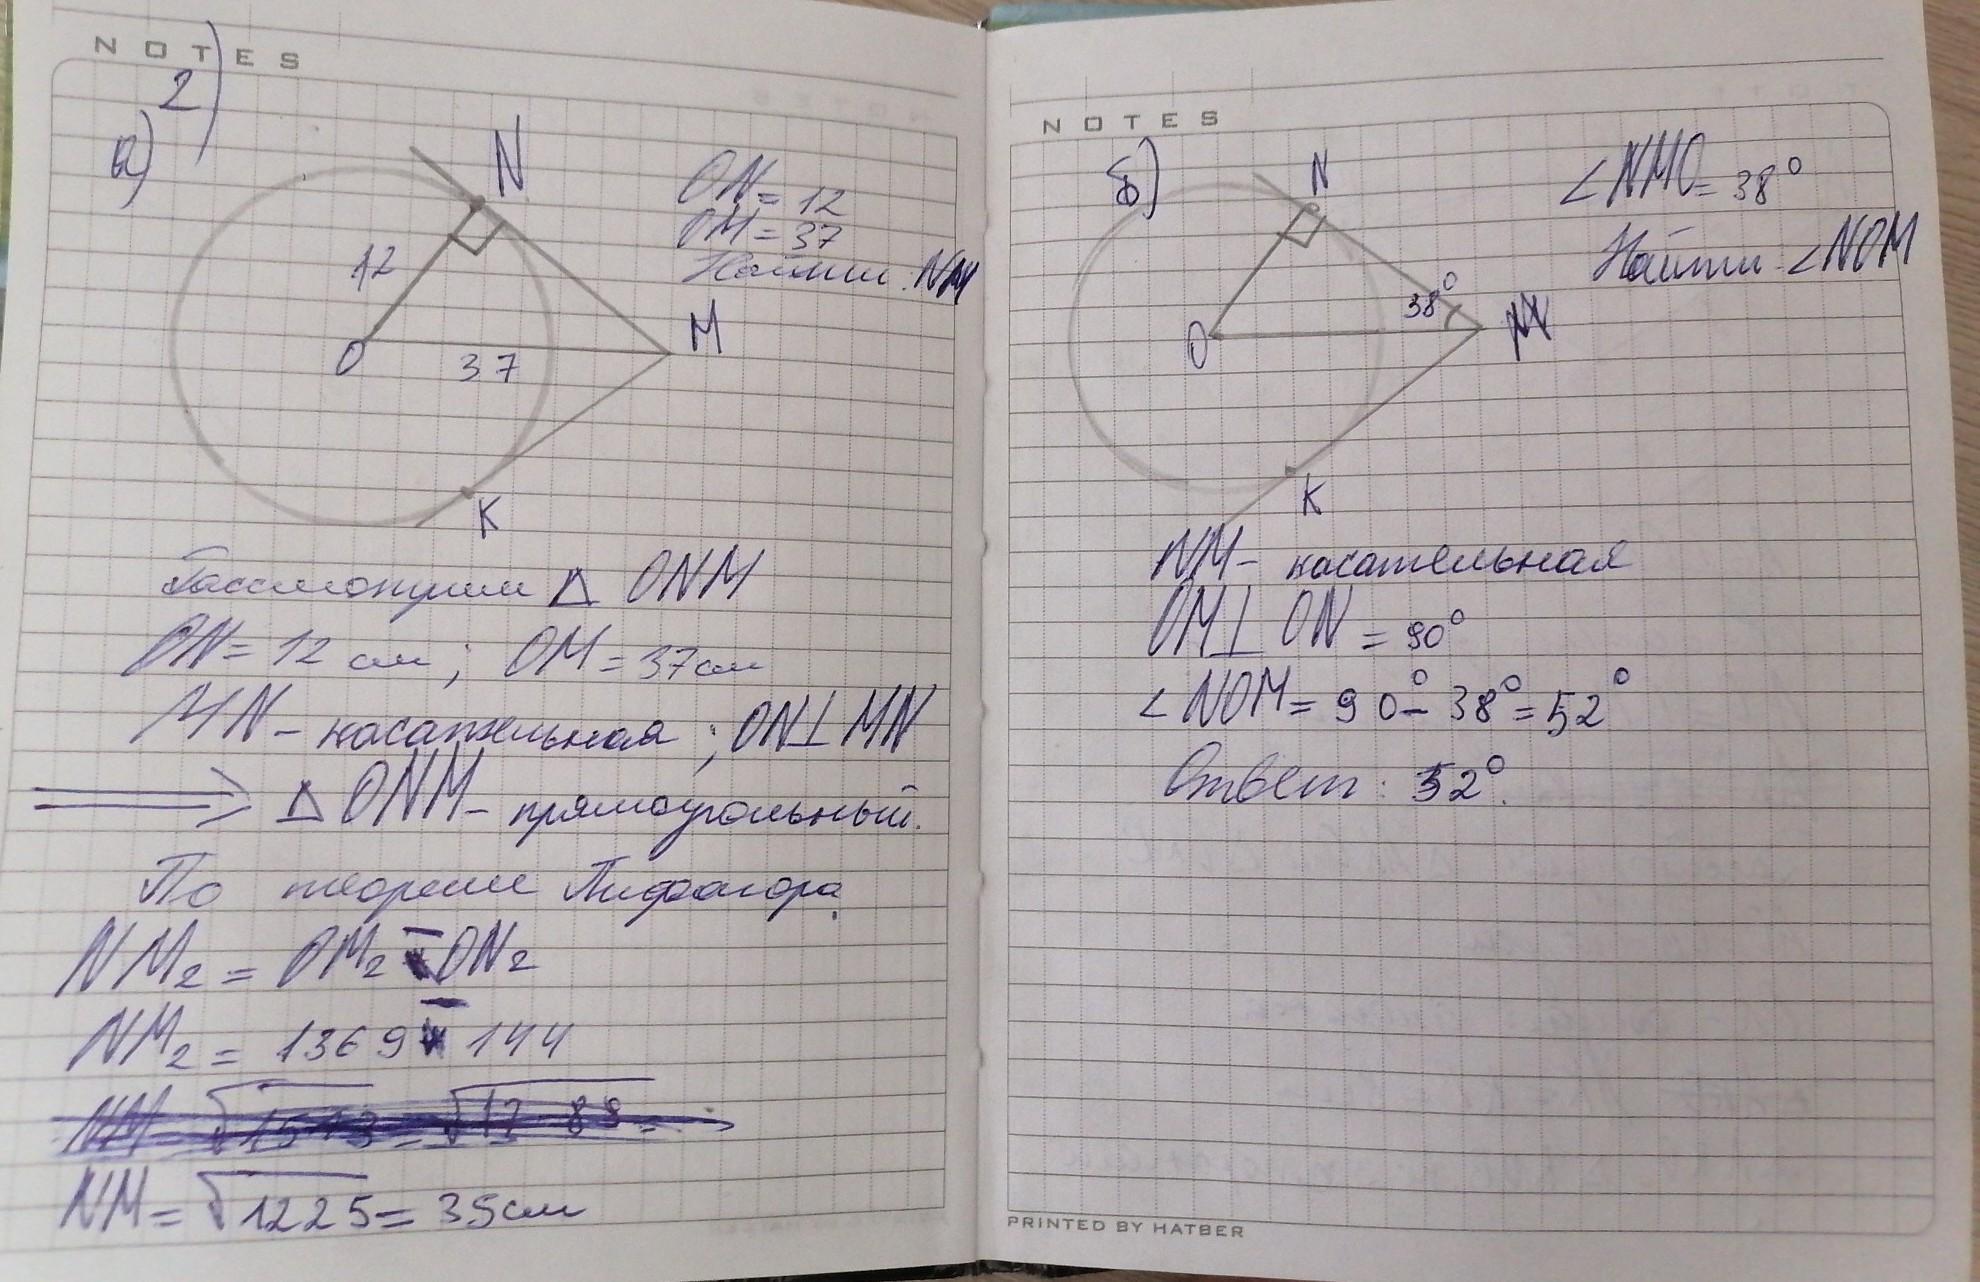 NOTES
2)
а)
N
ON = 12
OM = 37
Найти: NM
12
O
37
M
K
Рассмотрим Δ ONM
ON = 12 см; OM = 37см
MN - касательная; ON⊥MN
⟹ Δ ONM - прямоугольный.
По теореме Пифагора
NM₂ = OM₂ - ON₂
NM₂ = 1369 - 144
NM = √1225 = 35см
NOTES
б)
N
∠NMO = 38°
Найти ∠NOM
38°
O
M
K
NM - касательная
OM⊥ON = 90°
∠NOM = 90° - 38° = 52°
Ответ: 52°.
PRINTED BY HATBER